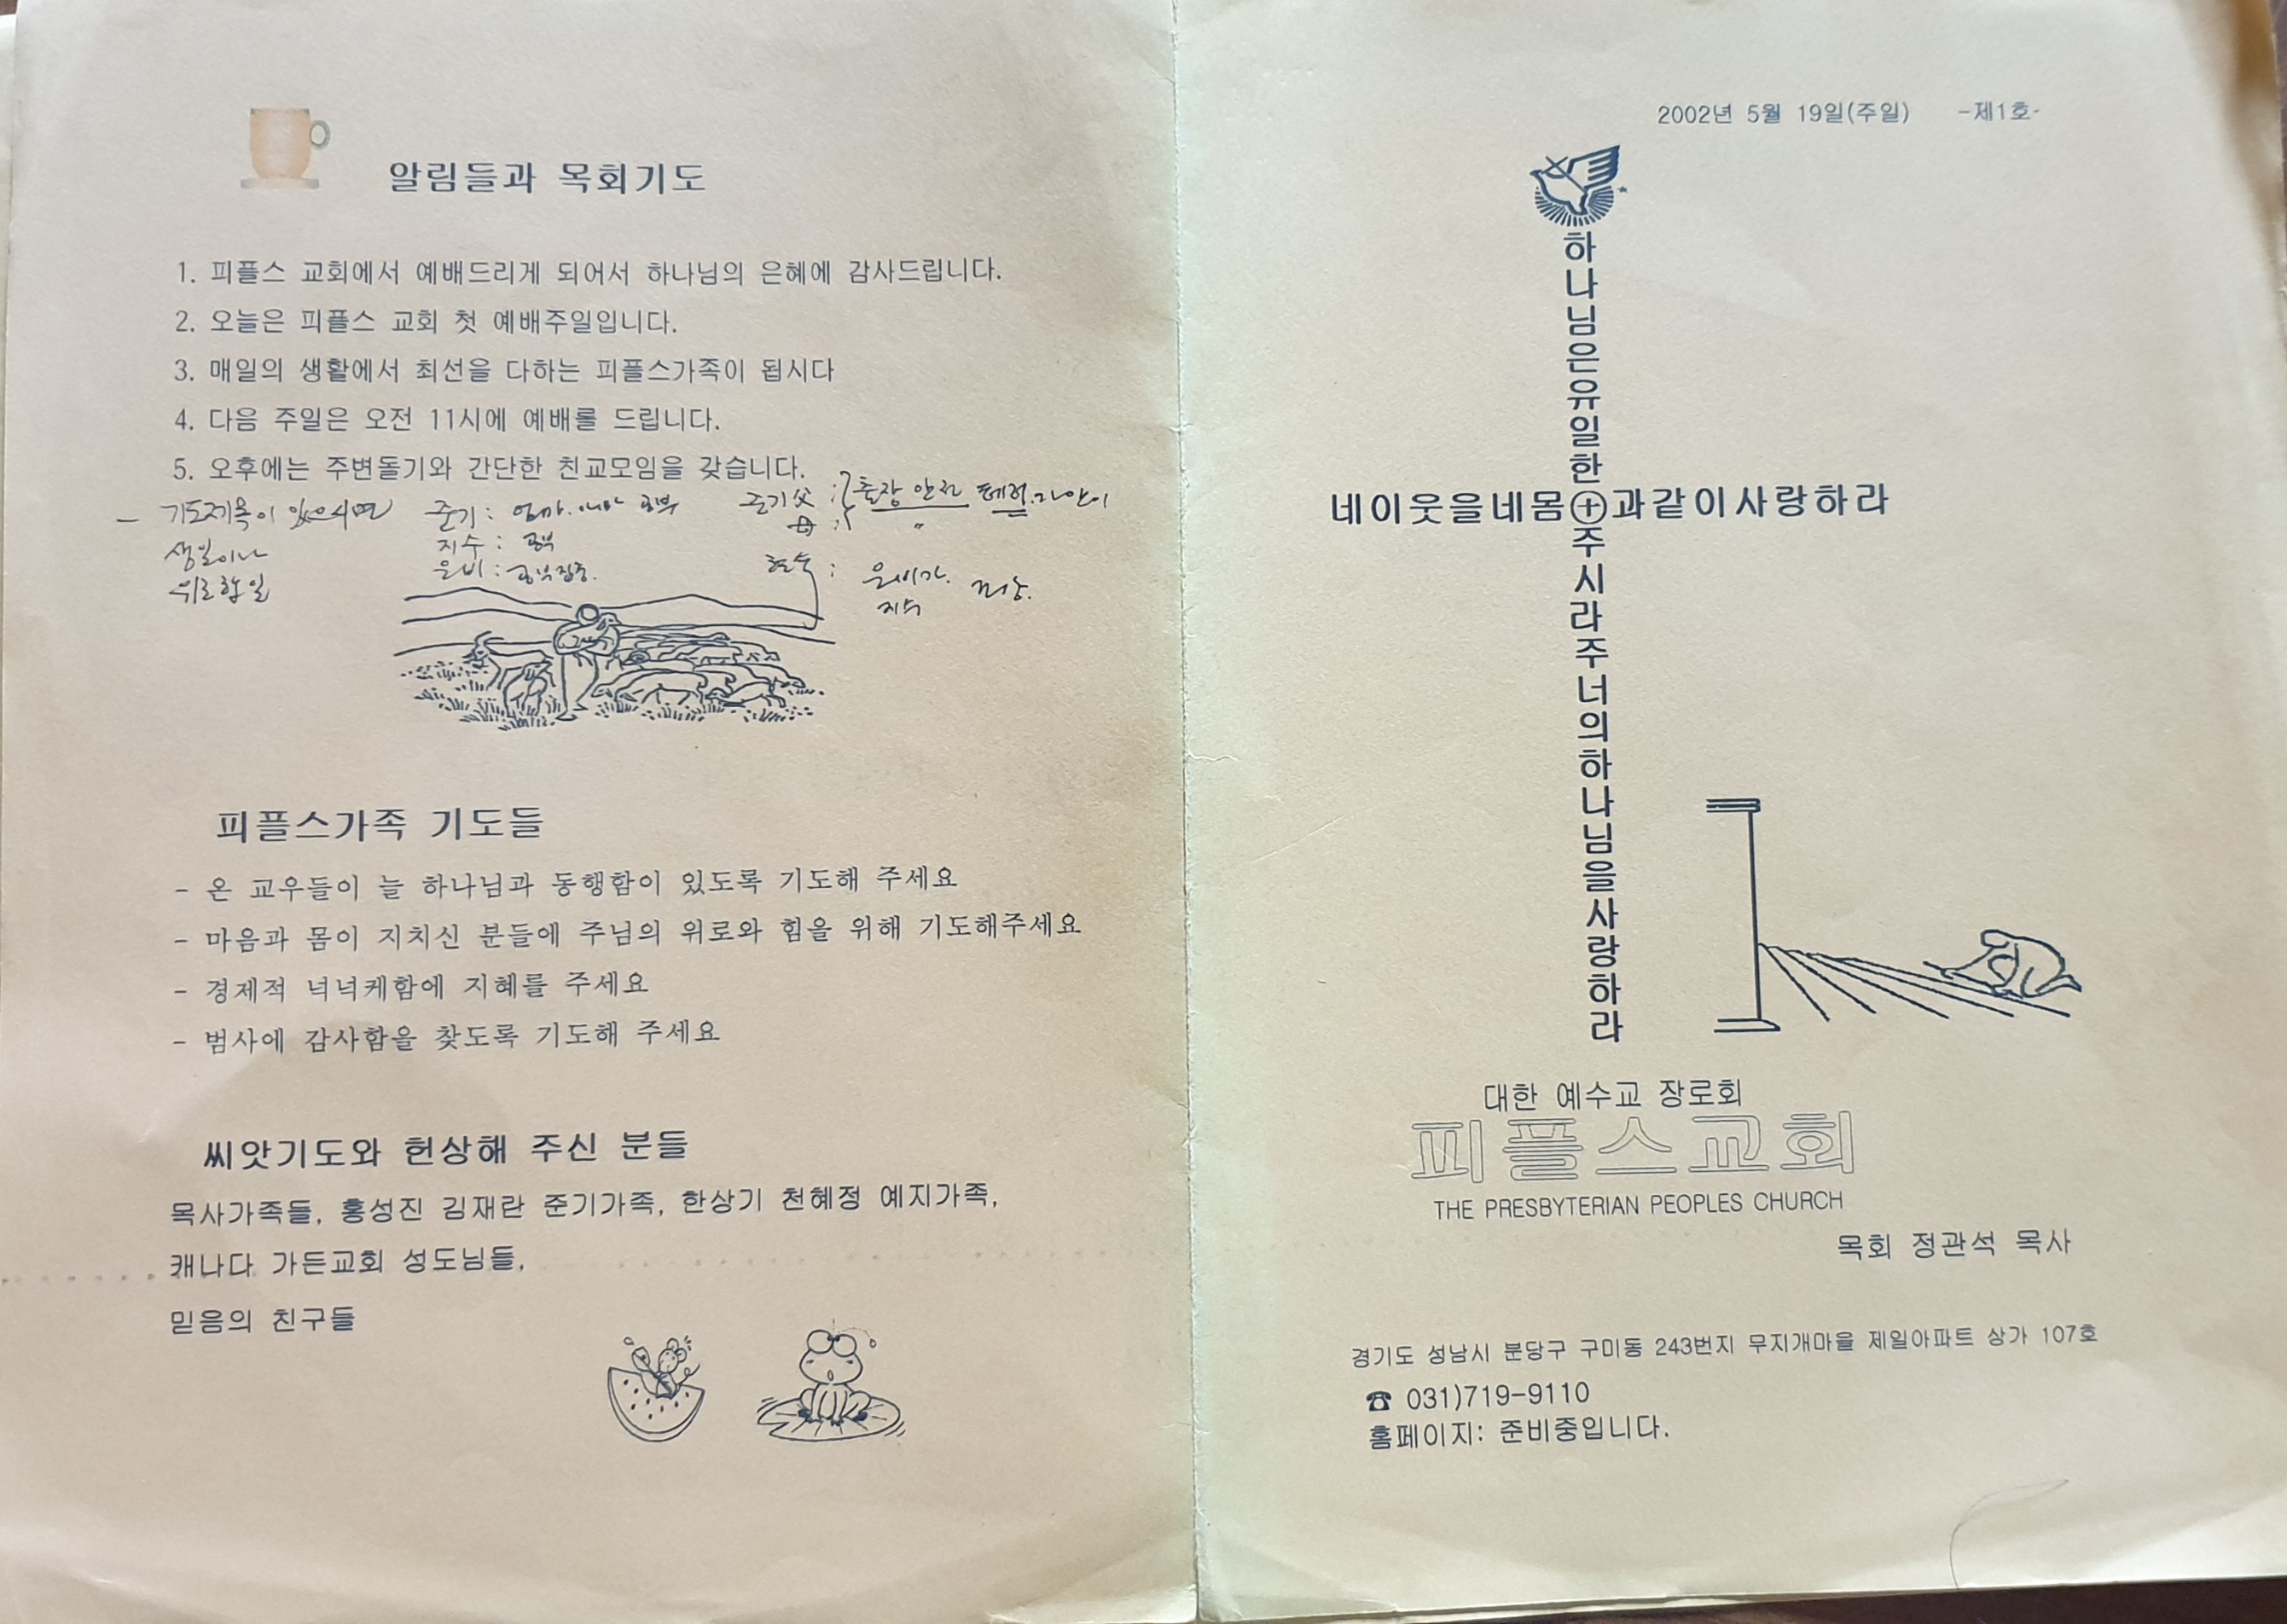 알림들과 목회기도
1. 피플스 교회에서 예배드리게 되어서 하나님의 은혜에 감사드립니다.
2. 오늘은 피플스 교회 첫 예배주일입니다.
3. 매일의 생활에서 최선을 다하는 피플스가족이 됩시다
4. 다음 주일은 오전 11시에 예배를 드립니다.
5. 오후에는 주변돌기와 간단한 친교모임을 갖습니다.
- 기도제목이 있으시면
생일이나
위로할일
준기: 엄마. 아빠 공부
지수: 공부
은비: 공부집중.
준기父: 출장 안전
母: 〃
은비가.
지수
피플스가족 기도들
- 온 교우들이 늘 하나님과 동행함이 있도록 기도해 주세요
- 마음과 몸이 지치신 분들에 주님의 위로와 힘을 위해 기도해주세요
- 경제적 넉넉케함에 지혜를 주세요
- 범사에 감사함을 찾도록 기도해 주세요
씨앗기도와 헌상해 주신 분들
목사가족들, 홍성진 김재란 준기가족, 한상기 천혜정 예지가족,
캐나다 가든교회 성도님들,
믿음의 친구들
2002년 5월 19일(주일) -제1호-
하나님은유일한주시라주너의하나님을사랑하라
네이웃을네몸과같이사랑하라
대한 예수교 장로회
피플스교회
THE PRESBYTERIAN PEOPLES CHURCH
목회 정관석 목사
경기도 성남시 분당구 구미동 243번지 무지개마을 제일아파트 상가 107호
☎ 031)719-9110
홈페이지: 준비중입니다.